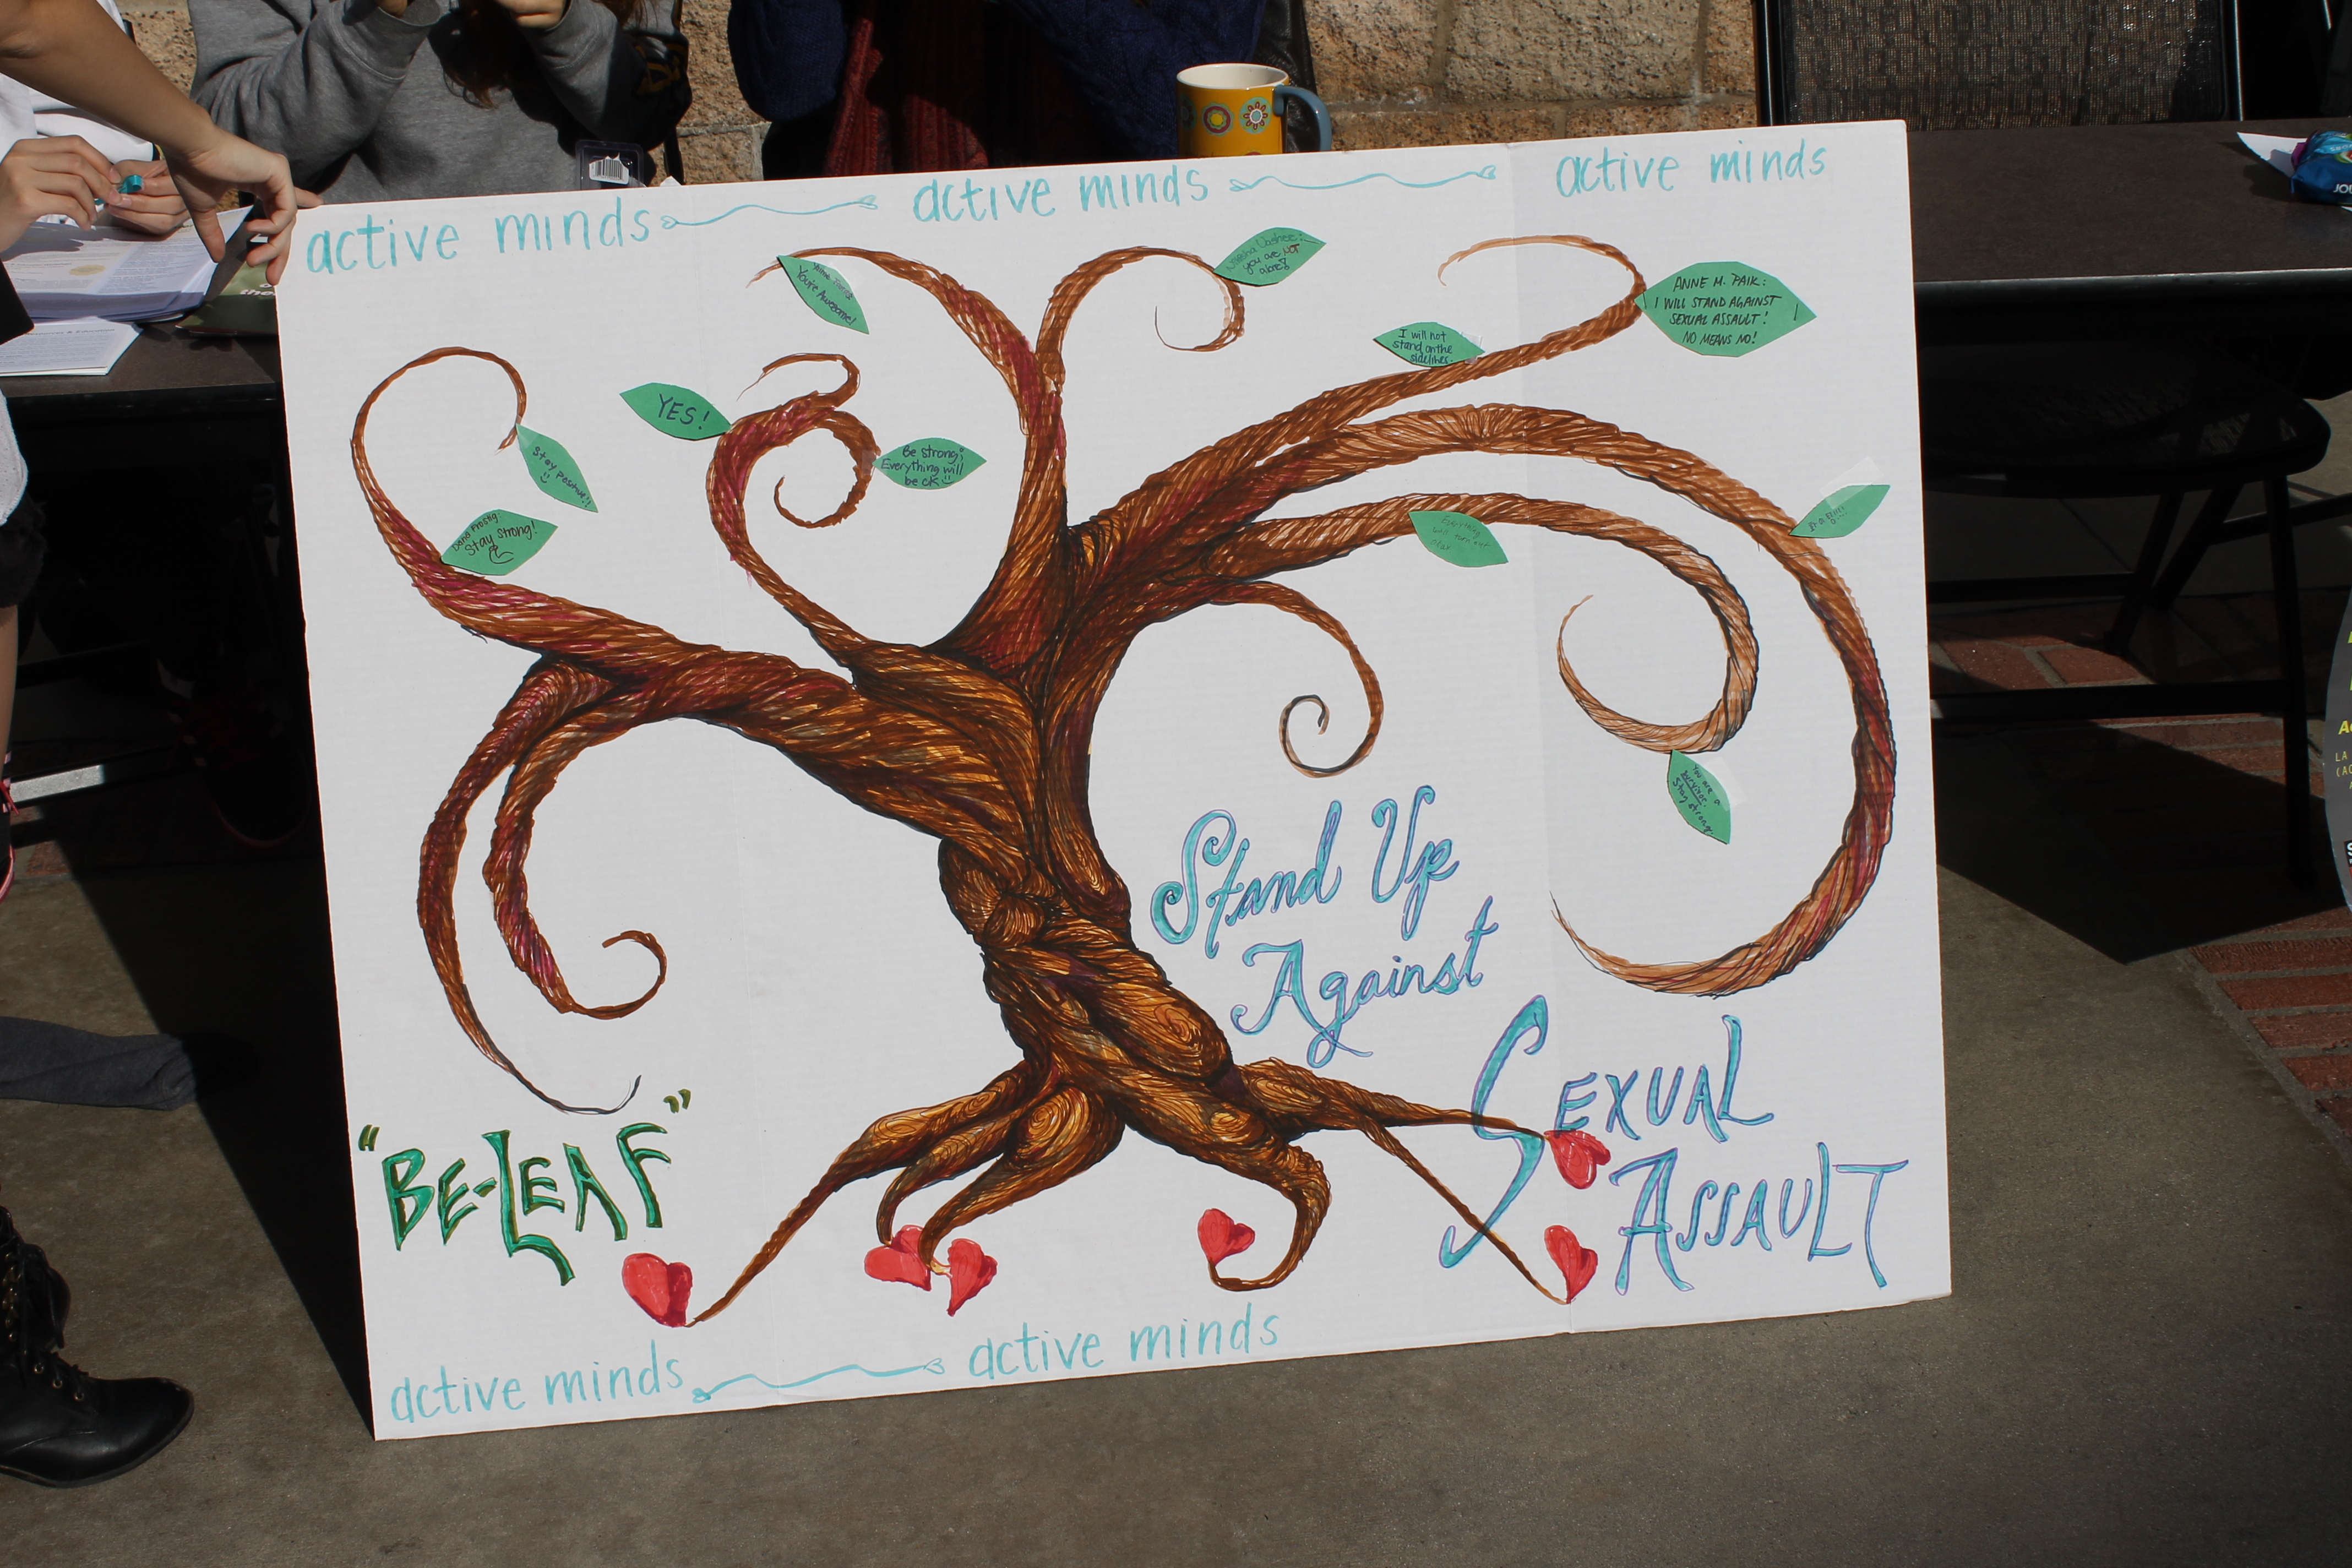 active minds
active minds
active minds
You're Awesome!
you are NOT
alone!
ANNE M. PAIK:
I WILL STAND AGAINST
SEXUAL ASSAULT!
NO MEANS NO!
I will not
stand on the
sidelines.
YES!
Be strong;
Everything will
be ok
Stay positive!!
Stay strong!
Everything
will turn out
okay
You are a
survivor.
Stay strong.
Stand Up
Against
SEXUAL
ASSAULT
"BE-LEAF"
active minds
active minds